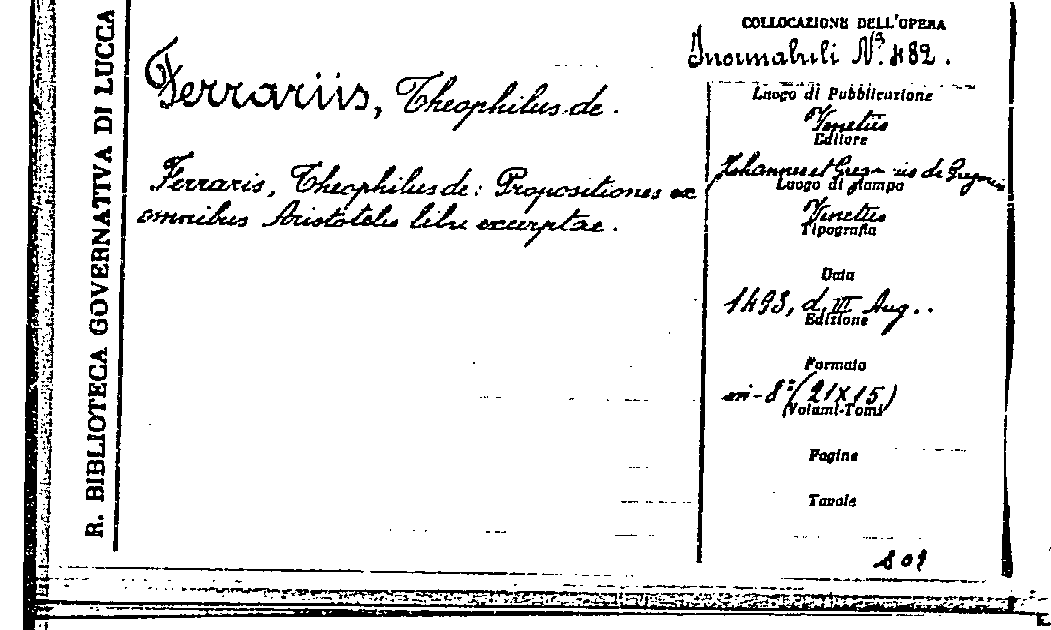 R. BIBLIOTECA GOVERNATIVA DI LUCCA
Ferrariis, Theophilus de.
Ferraris, Theophilus de: Propositiones ex
omnibus Aristotelis libris excerptae.
COLLOCAZIONE DELL'OPERA
Incunabuli N.º 482.
Luogo di Pubblicazione
Venetiis
Editore
Johannes et Gregorius de Gregoriis
Luogo di stampa
Venetiis
Tipografia
Data
1493, d. III Aug..
Edizione
Formato
in-8º (21X15)
(Volumi-Tomi)
Pagine
Tavole